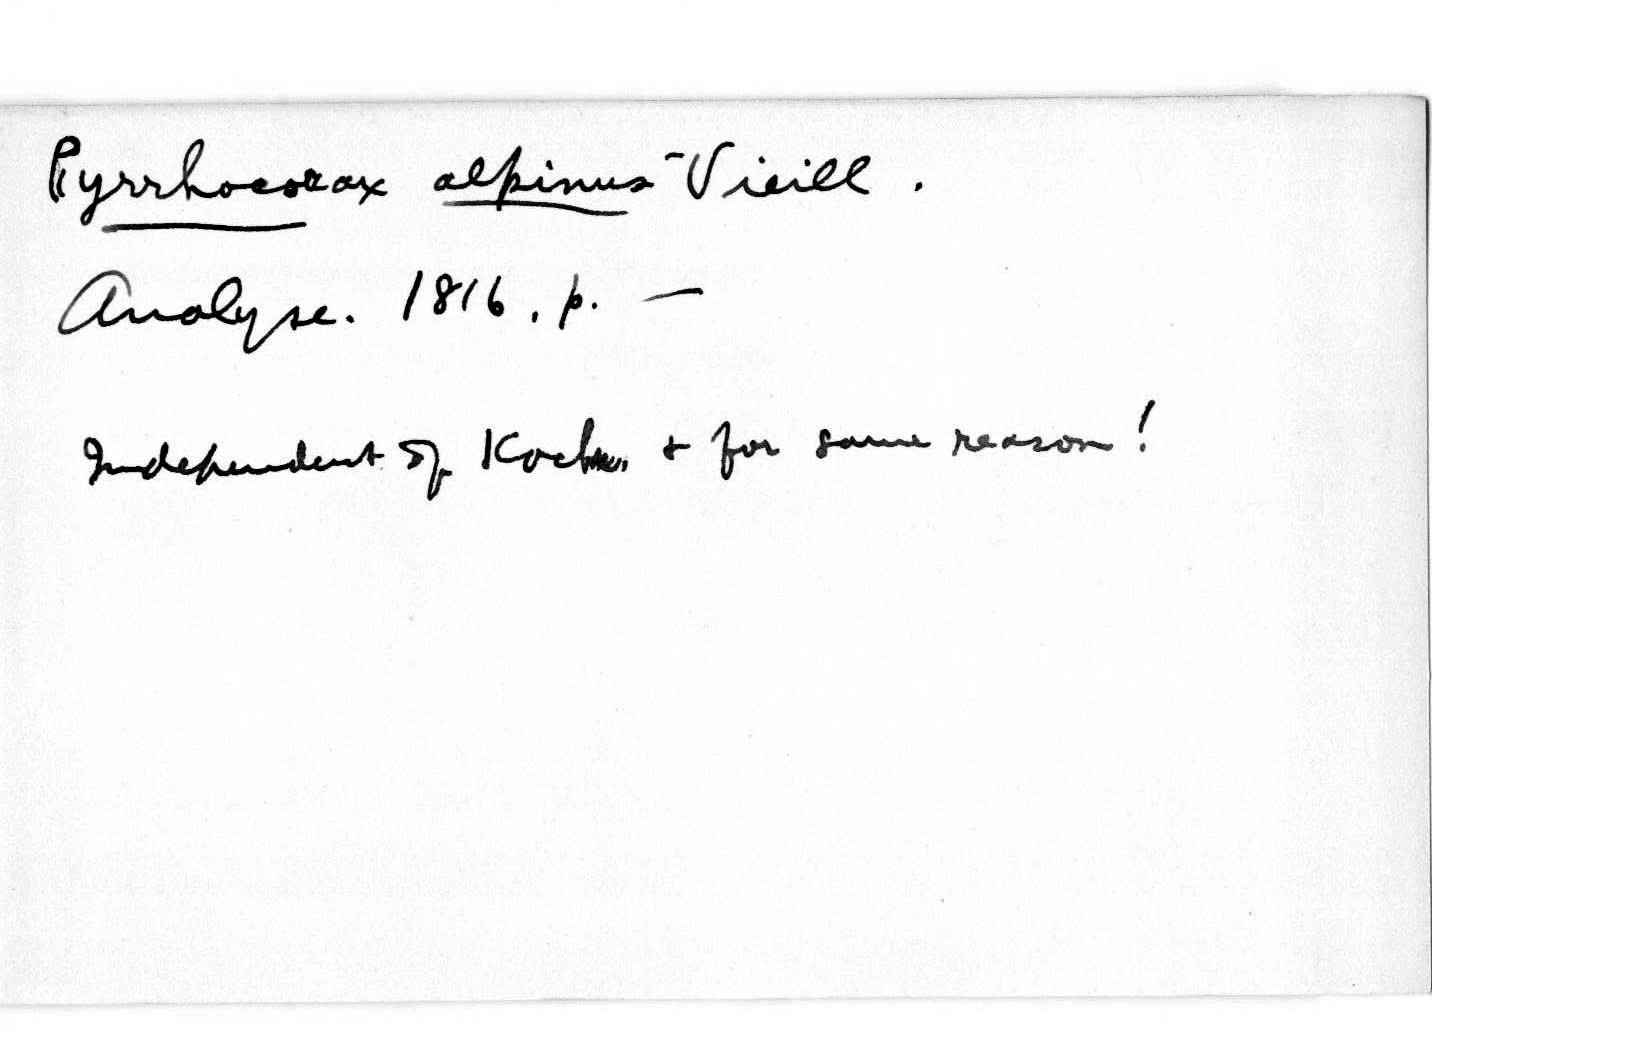 Pyrrhocorax alpinus Vieill.
Analyse. 1816. p. —
Independent of Koch & for same reason!